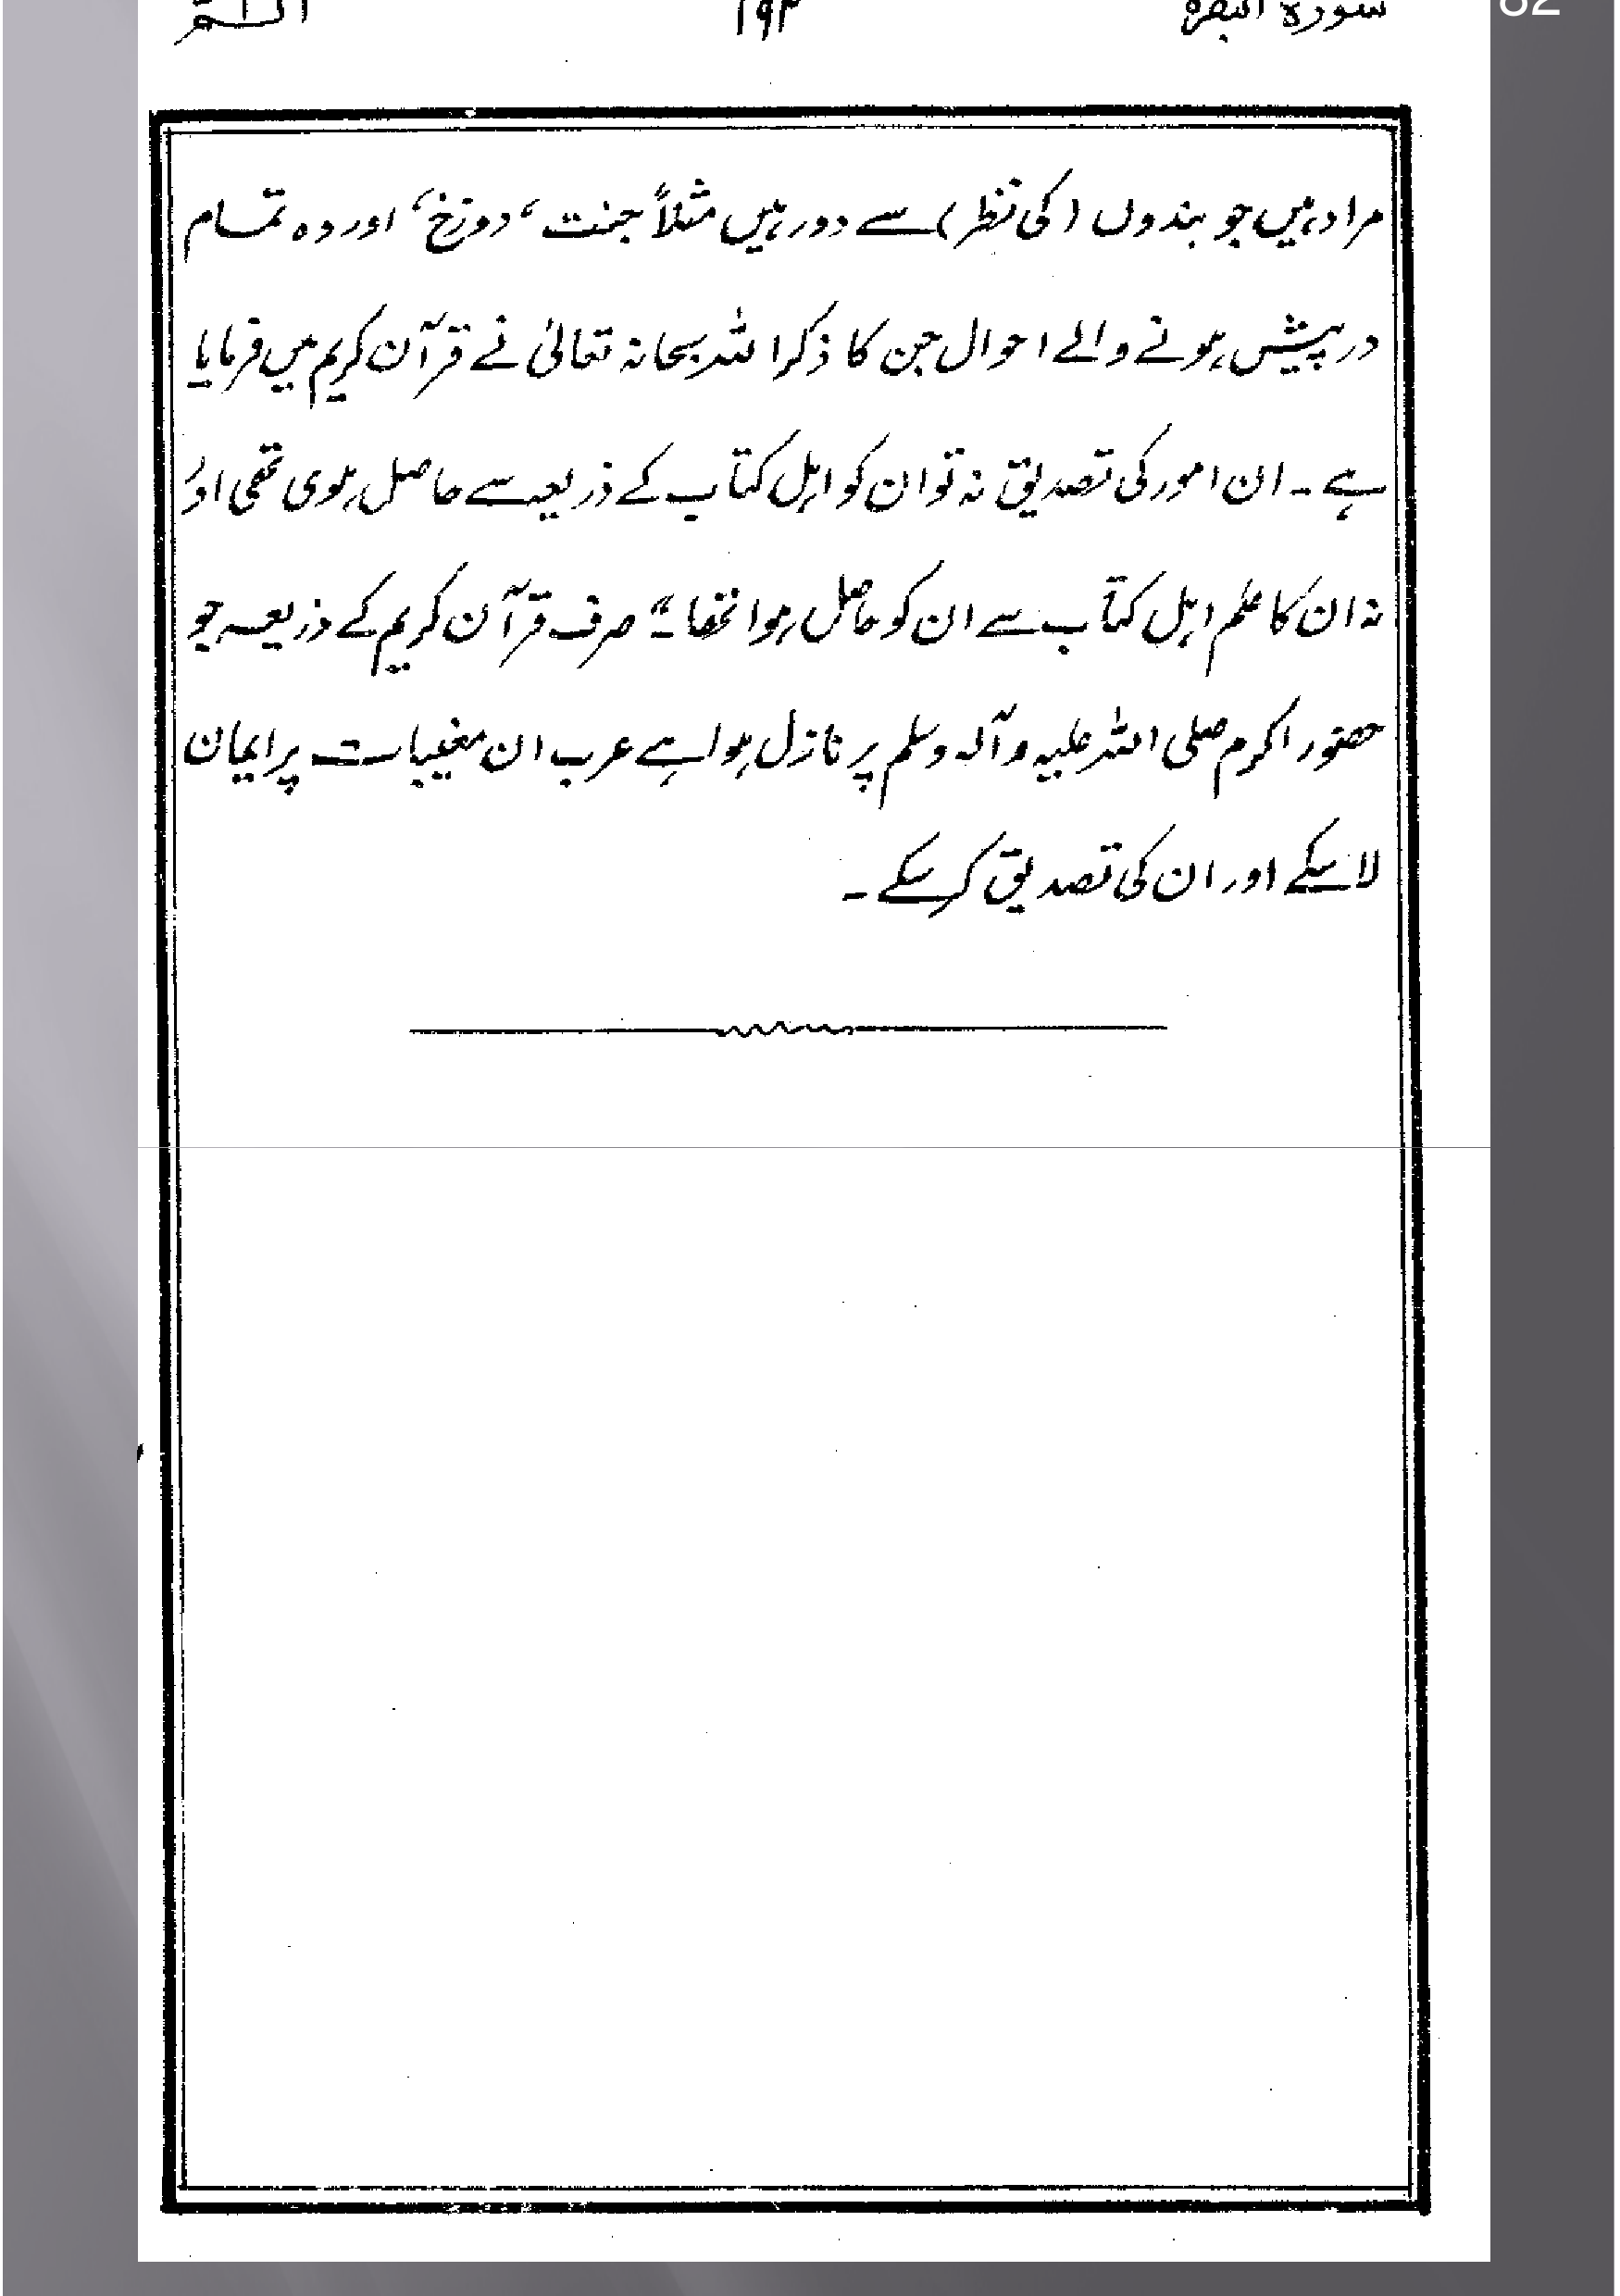 سورۃ البقرہ ۱۹۴ الٓـمّٓ
مراد ہیں جو بندوں (کی نظر) سے دور ہیں مثلاً جنت ، دوزخ ، اور وہ تمام
درپیش ہونے والے احوال جن کا ذکر اللہ سبحانہ تعالیٰ نے قرآن کریم میں فرمایا
ہے ۔ ان امور کی تصدیق نہ تو ان کو اہل کتاب کے ذریعہ سے حاصل ہوی تھی اور
نہ ان کا علم اہل کتاب سے ان کو حاصل ہوا تھا ۔" صرف قرآن کریم کے ذریعہ جو
حضور اکرم صلی اللہ علیہ و آلہ وسلم پر نازل ہوا ہے عرب ان مغیبات پر ایمان
لا سکے اور ان کی تصدیق کر سکے ۔